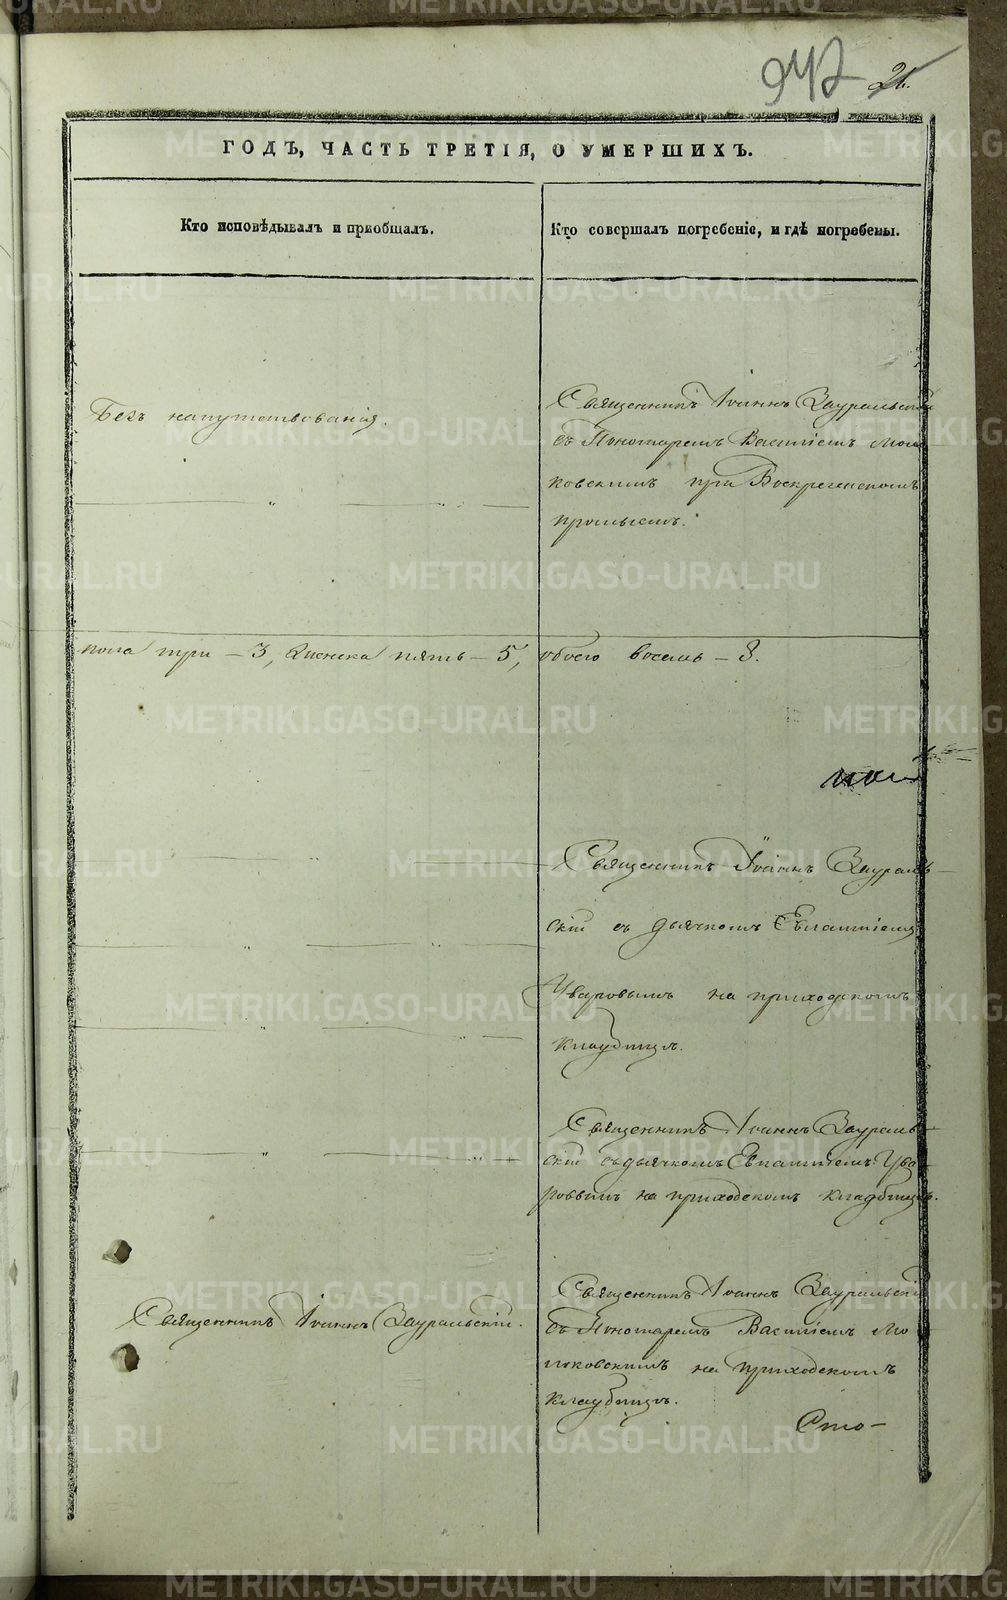 947 26.
ГОДЪ, ЧАСТЬ ТРЕТІЯ, О УМЕРШИХЪ.
Кто исповѣдывалъ и пріобщалъ.
Кто совершалъ погребеніе, и гдѣ погребены.
Безъ напутствованія.
Священникъ Іоаннъ Зауральскій
съ Пономаремъ Василіемъ
ковскимъ при Воскресенскомъ
промыслѣ.
пола три – 3, женска пять – 5, обоего восемь – 8.
Священникъ Іоаннъ Заураль-
скій съ дьячкомъ Евлампіемъ
Уваровымъ на приходскомъ
кладбищѣ.
Священникъ Іоаннъ Заураль-
скій съ дьячкомъ Евлампіемъ Ува-
ровымъ на приходскомъ кладбищѣ.
Священникъ Іоаннъ Зауральскій.
Священникъ Іоаннъ Зауральскій
съ Пономаремъ Василіемъ
на приходскомъ
кладбищѣ.
METRIKI.GASO-URAL.RU